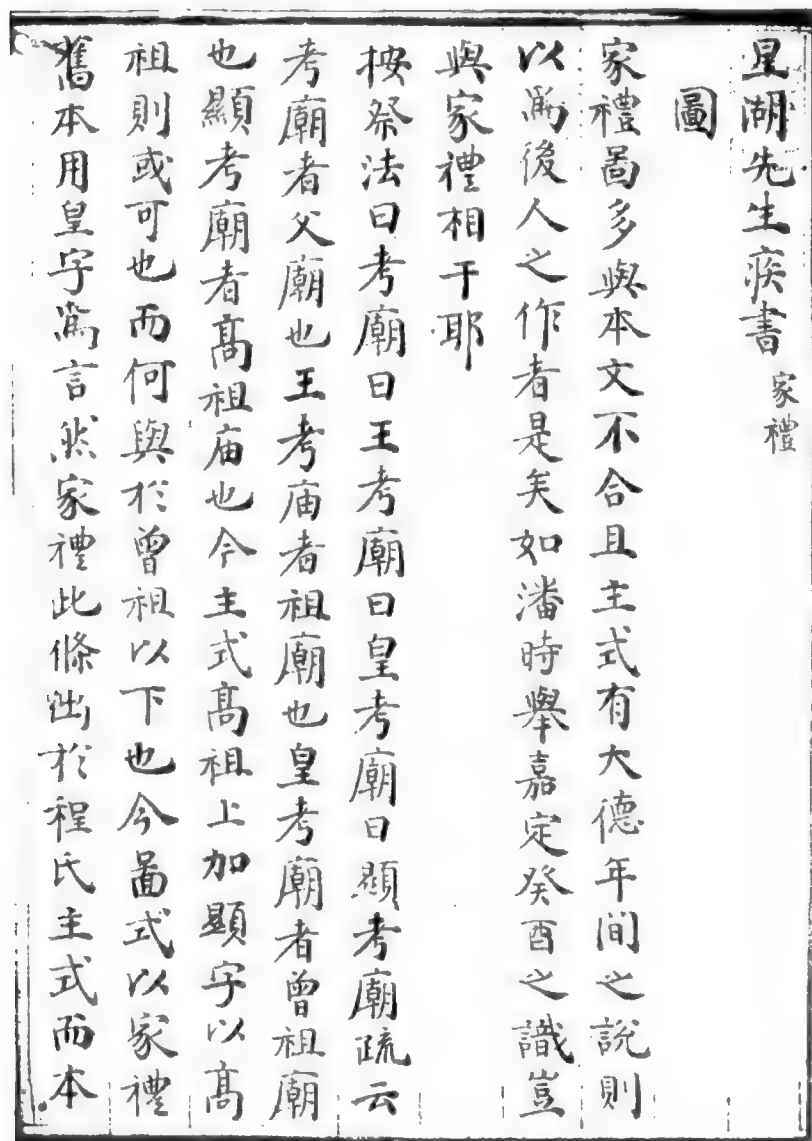 星湖先生疾書 家禮
圖
家禮啚多與本文不合且主式有大德年间之說則
以爲後人之作者是矣如潘時舉嘉定癸酉之識豈
與家禮相干耶
按祭法曰考廟曰王考廟曰皇考廟曰顯考廟疏云
考廟者父廟也王考庙者祖廟也皇考廟者曾祖廟
也顯考廟者髙祖庙也今主式髙祖上加顯字以髙
祖則或可也而何與於曾祖以下也今啚式以家禮
舊本用皇字爲言然家禮此條出於程氏主式而本